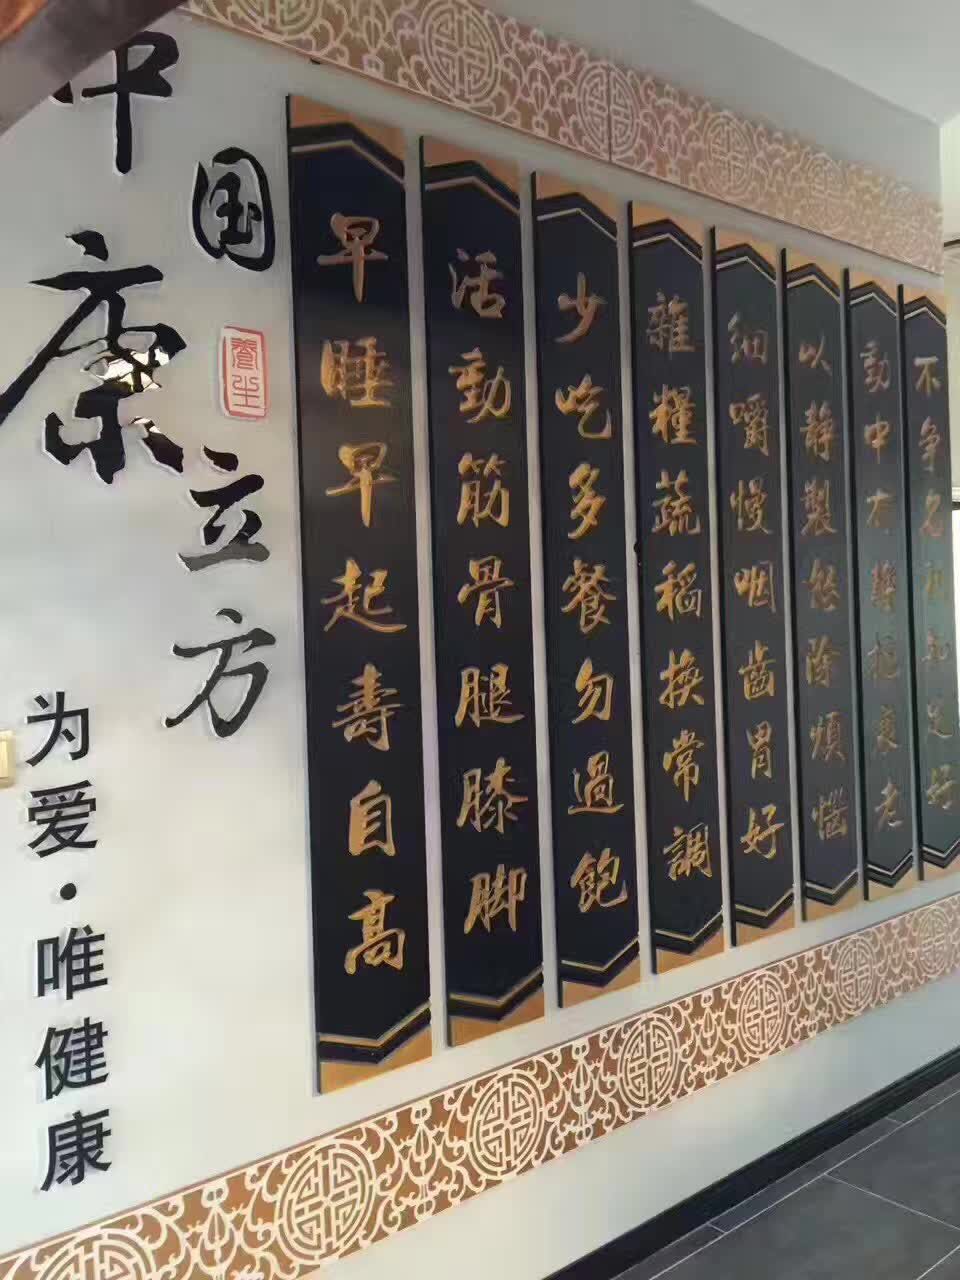 中国
康立方
養生
为爱·唯健康
早睡早起壽自高
活動筋骨腿膝脚
少吃多餐勿過飽
雜糧蔬稻換常調
細嚼慢咽齒胃好
以静製怒除煩惱
動中有静抗衰老
不争名利知足好